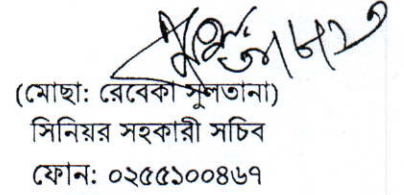 (মোছা: রেবেকা সুলতানা)
সিনিয়র সহকারী সচিব
ফোন: ০২৫৫১০০৪৬৭